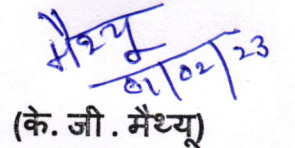 मैथ्यू
01/02/23
(के. जी. मैथ्यू)